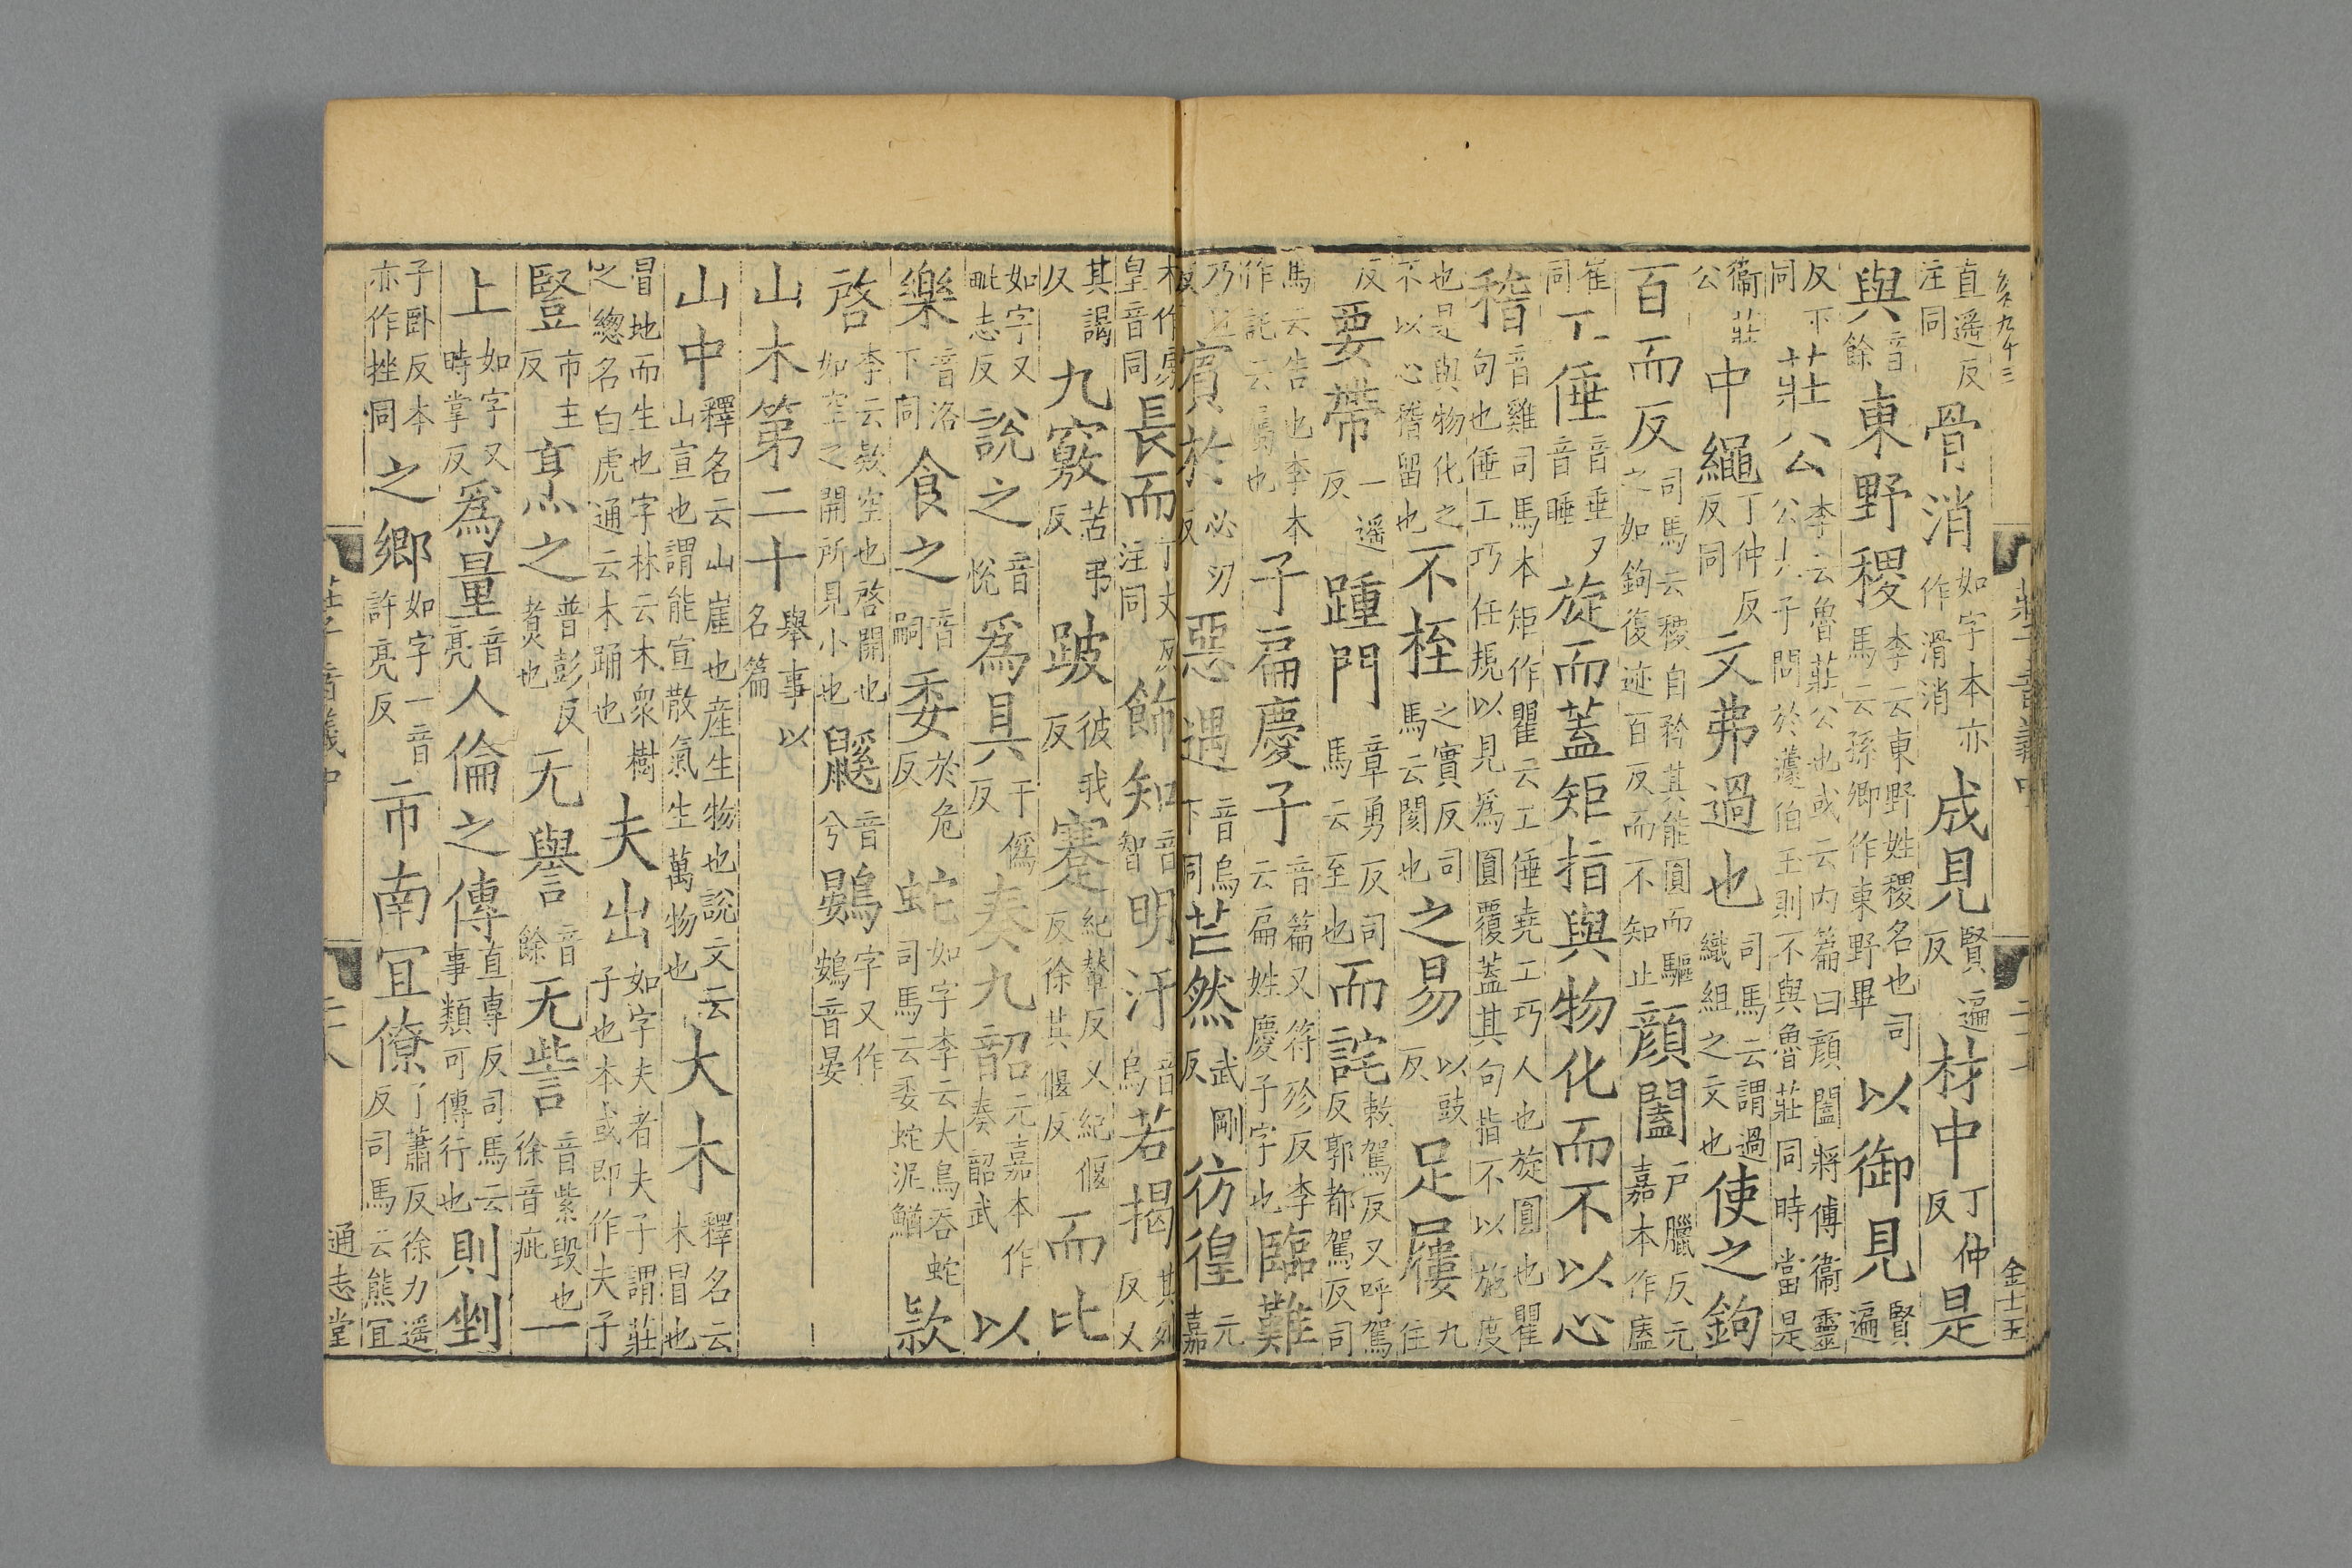 莊子音義中 金士玉
直遥反注同骨消如字本亦作滑消成見賢遍反材中丁仲反是
與音餘東野稷李云東野姓稷名也司馬云孫卿作東野畢以御見賢遍
反下同莊公李云魯莊公也或云内篇曰顔闔將傅衞靈公太子問於蘧伯玉則不與魯莊同時當是
衞莊公中繩丁仲反同文弗過也司馬云謂過織組之文也使之鉤
百而反司馬云稷自矜其能圓而驅之如鉤復迹百反而不知止顔闔戶臘反元嘉本作廅
崔同工倕音垂又音睡旋而蓋矩指與物化而不以心
稽音雞司馬本矩作瞿云工倕堯工巧人也旋圓也瞿句也倕工巧任規以見爲圓覆蓋其句指不以施度
也是與物化之不以心稽留也不桎之實反司馬云閡也之易以豉反足屨九住
反要帶一遥反踵門章勇反司馬云至也而詫敕駕反又呼駕反郭都駕反司
馬云告也李本作託云屬也子扁慶子音篇又符殄反李云扁姓慶子字也臨難
乃旦反賓於必刃反惡遇音烏下同芒然武剛反彷徨元嘉
本作房皇音同長而丁丈反注同飾知音智明汙音烏若揭其列反又
其謁反九竅苦弔反跛彼我反蹇紀輦反又紀偃反徐其偃反而比
如字又毗志反說之音悅爲具于僞反奏九韶元嘉本作奏韶武以
樂音洛下同食之音嗣委於危反蛇如字李云大鳥吞蛇司馬云委蛇泥鰌款
啓李云款空也啓開也如空之開所見小也鼷音兮鷃字又作鴳音晏
山木第二十舉事以名篇
山中釋名云山崖也産生物也說文云山宣也謂能宣散氣生萬物也大木釋名云木冒也
冒地而生也字林云木衆樹之緫名白虎通云木踊也夫出如字夫者夫子謂莊子也本或即作夫子
豎市主反亯之普彭反煑也无譽音餘无訾音紫毀也徐音疵一
上如字又時掌反爲量音亮人倫之傳直專反司馬云事類可傳行也則剉
子卧反本亦作挫同之鄉如字一音許亮反市南冝僚了蕭反徐力遥反司馬云熊冝
二十八 通志堂